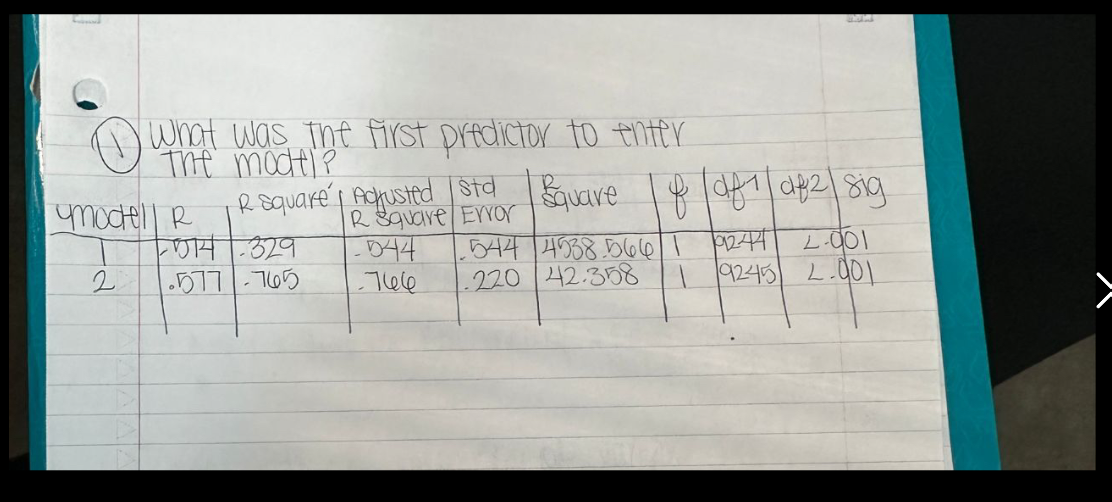 1 What was the first predictor to enter
the model?
model R R square Adjusted R Square Std Error R Square f df1 df2 sig
1 .574 .329 .544 .544 4538.566 1 9244 <.001
2 .577 .765 .766 .220 42.358 1 9245 <.001